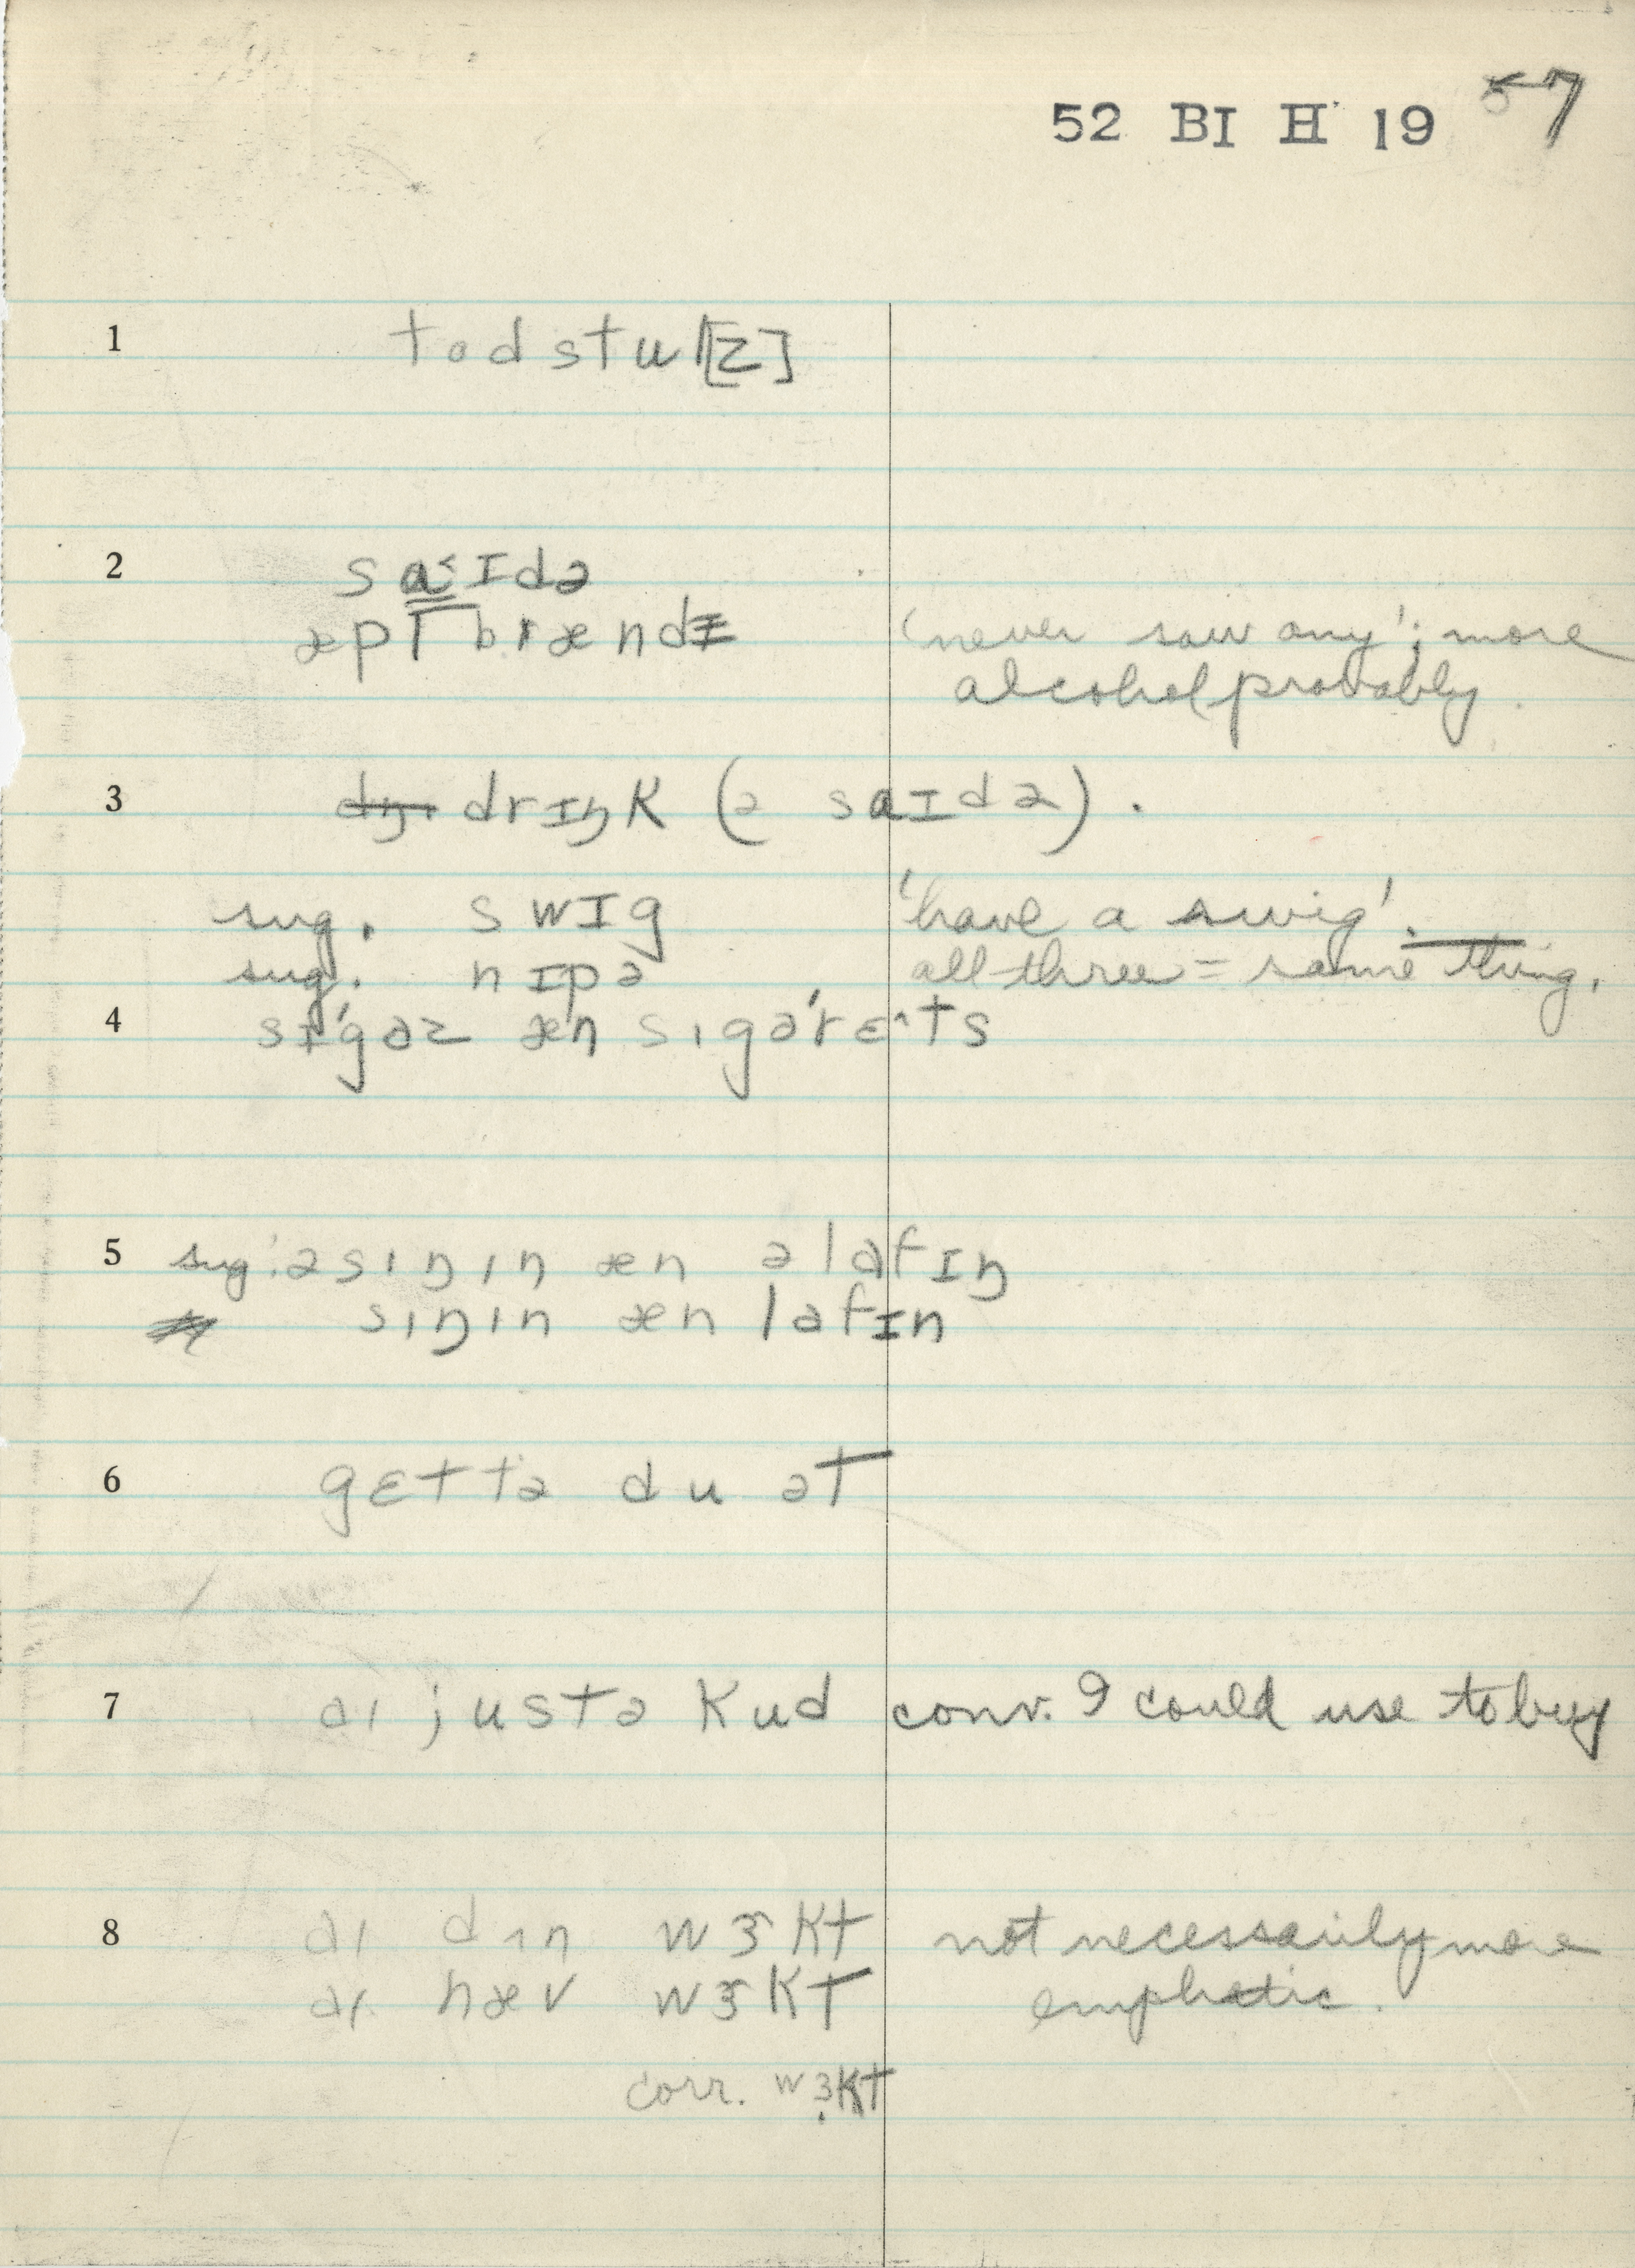 52 BI H 19 7
1 todstul[z]
2 sa˂ɪdə
æpl̩ brændɪ 'never saw any'; more
alcohol probably.
3 drɪŋk (ə saɪdə).
sug. swɪg 'have a swig'.
sug. nɪpə all three = same thing.
4 sɪ́gəz æn sɪgərɛ^ts
5 sug. əsɪŋɪn æn əlafɪŋ
sɪŋɪn æn lafɪn
6 gɛttə du ət
7 aɪ justə kud conv. I could use to buy
8 aɪ dɪn wɝkt not necessarily more
aɪ hæv wɝkt emphatic.
corr. wɜkt